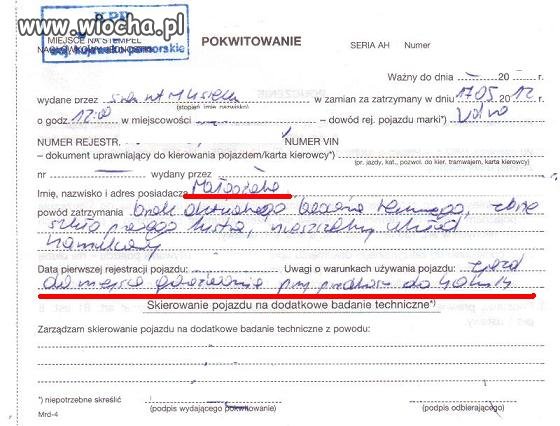 www.wiocha.pl
KPP
MIEJSCE NA STEMPEL
woj. kujawsko-pomorskie
POKWITOWANIE
SERIA AH Numer
Ważny do dnia 20 r.
wydane przez w zamian za zatrzymany w dniu 17.05 2012 r.
(stopień imię nazwisko)
o godz. 12:00 w miejscowości – dowód rej. pojazdu marki*) Volvo
NUMER REJESTR. NUMER VIN
– dokument uprawniający do kierowania pojazdem/karta kierowcy*)
(pr. jazdy, kat., pozwol. do kier. tramwajem, karta kierowcy)
nr wydany przez
Imię, nazwisko i adres posiadacza Małgorzata
powód zatrzymania brak aktualnego badania, zbite
szkło prawego lustra, nieszczelny układ
hamulcowy
Data pierwszej rejestracji pojazdu: Uwagi o warunkach używania pojazdu: zjazd
do miejsca przy do 40 km/h
Skierowanie pojazdu na dodatkowe badanie techniczne*)
Zarządzam skierowanie pojazdu na dodatkowe badanie techniczne z powodu:
*) niepotrzebne skreślić
Mrd-4
(podpis wydającego pokwitowanie)
(podpis odbierającego)